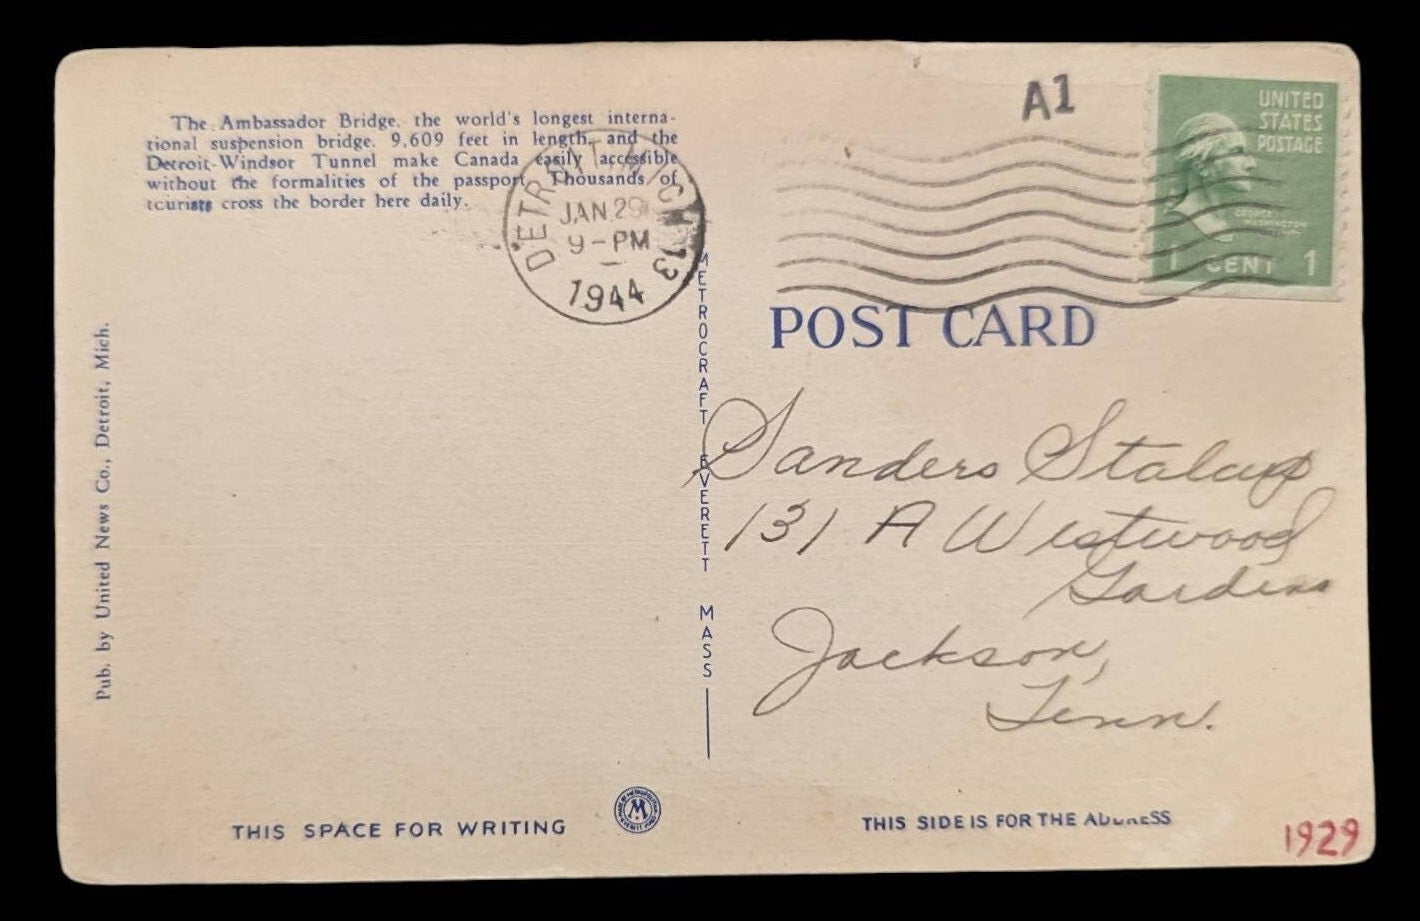 The Ambassador Bridge, the world's longest interna-
tional suspension bridge, 9,609 feet in length, and the
Detroit-Windsor Tunnel make Canada easily accessible
without the formalities of the passport. Thousands of
tourists cross the border here daily.
Pub. by United News Co., Detroit, Mich.
THIS SPACE FOR WRITING
M
DETROIT MICH 13
JAN 29
9-PM
1944
METROCRAFT EVERETT MASS
A1
UNITED
STATES
POSTAGE
GEORGE
WASHINGTON
1 CENT 1
POST CARD
Sanders Stalcup
131 A Westwood
Gardens
Jackson,
Tenn.
THIS SIDE IS FOR THE ADDRESS
1929